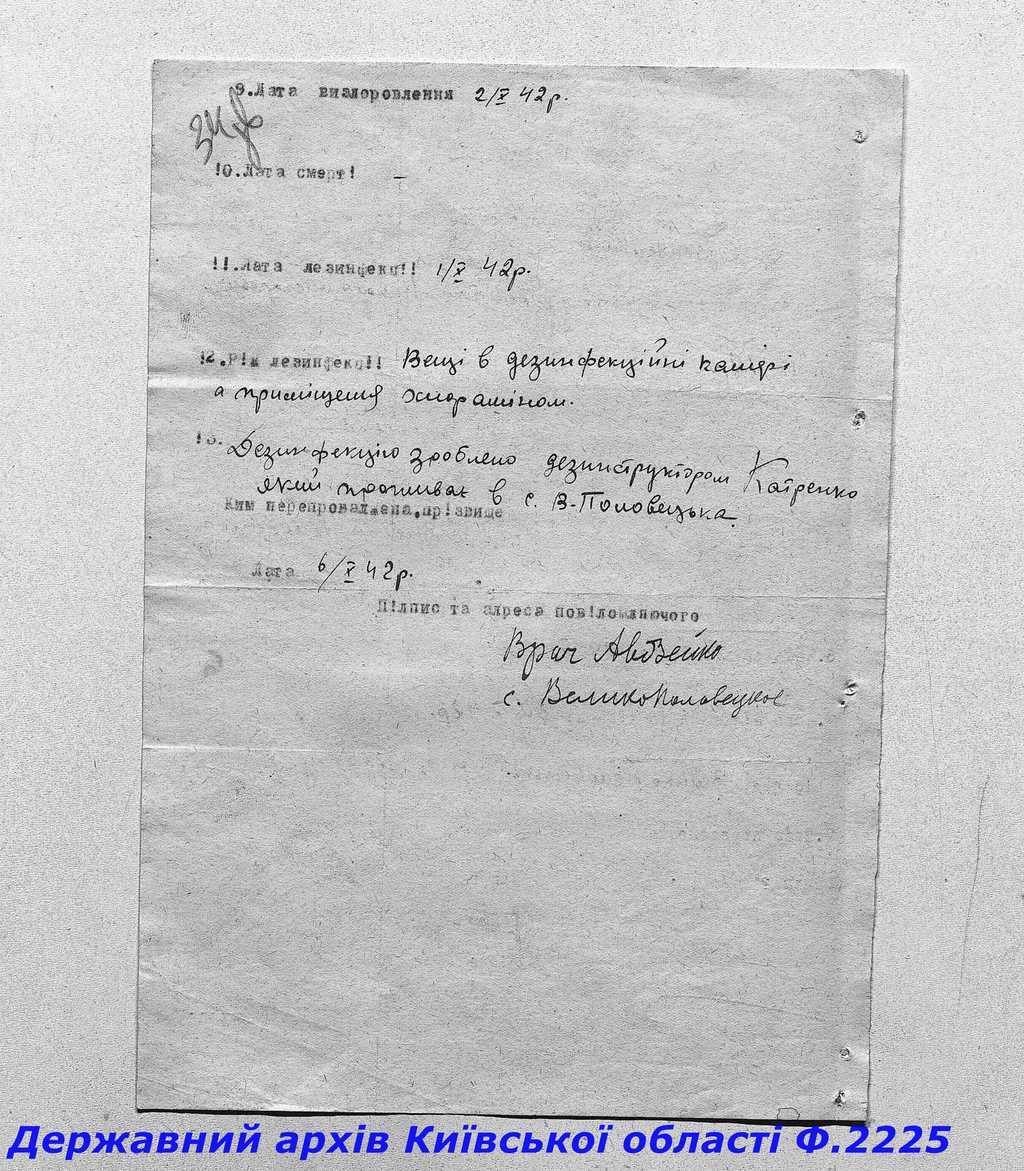 9.Дата виздоровлення 2/X 42р.
!0.Дата смерт! –
!!.Дата дезинфекц!! 1/X 42р.
!2.Р!д дезинфекц!! Вещі в дезинфекційні камірі
а приміщеня хлораміном.
!3. Дезинфекцію зроблено дезинструктором Катренко
який проживає в с. В-Половецька.
Ким перепроваджена,пр!звище
Дата 6/X 42р.
П!дпис та адреса пов!домляючого
Врач Авдзейко
с. ВеликоПоловецкое
Державний архів Київської області Ф.2225